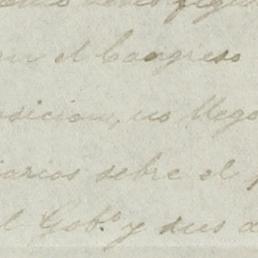 en el Congreso
osicion, no llego
arios sobre el
el Gob.º y sus